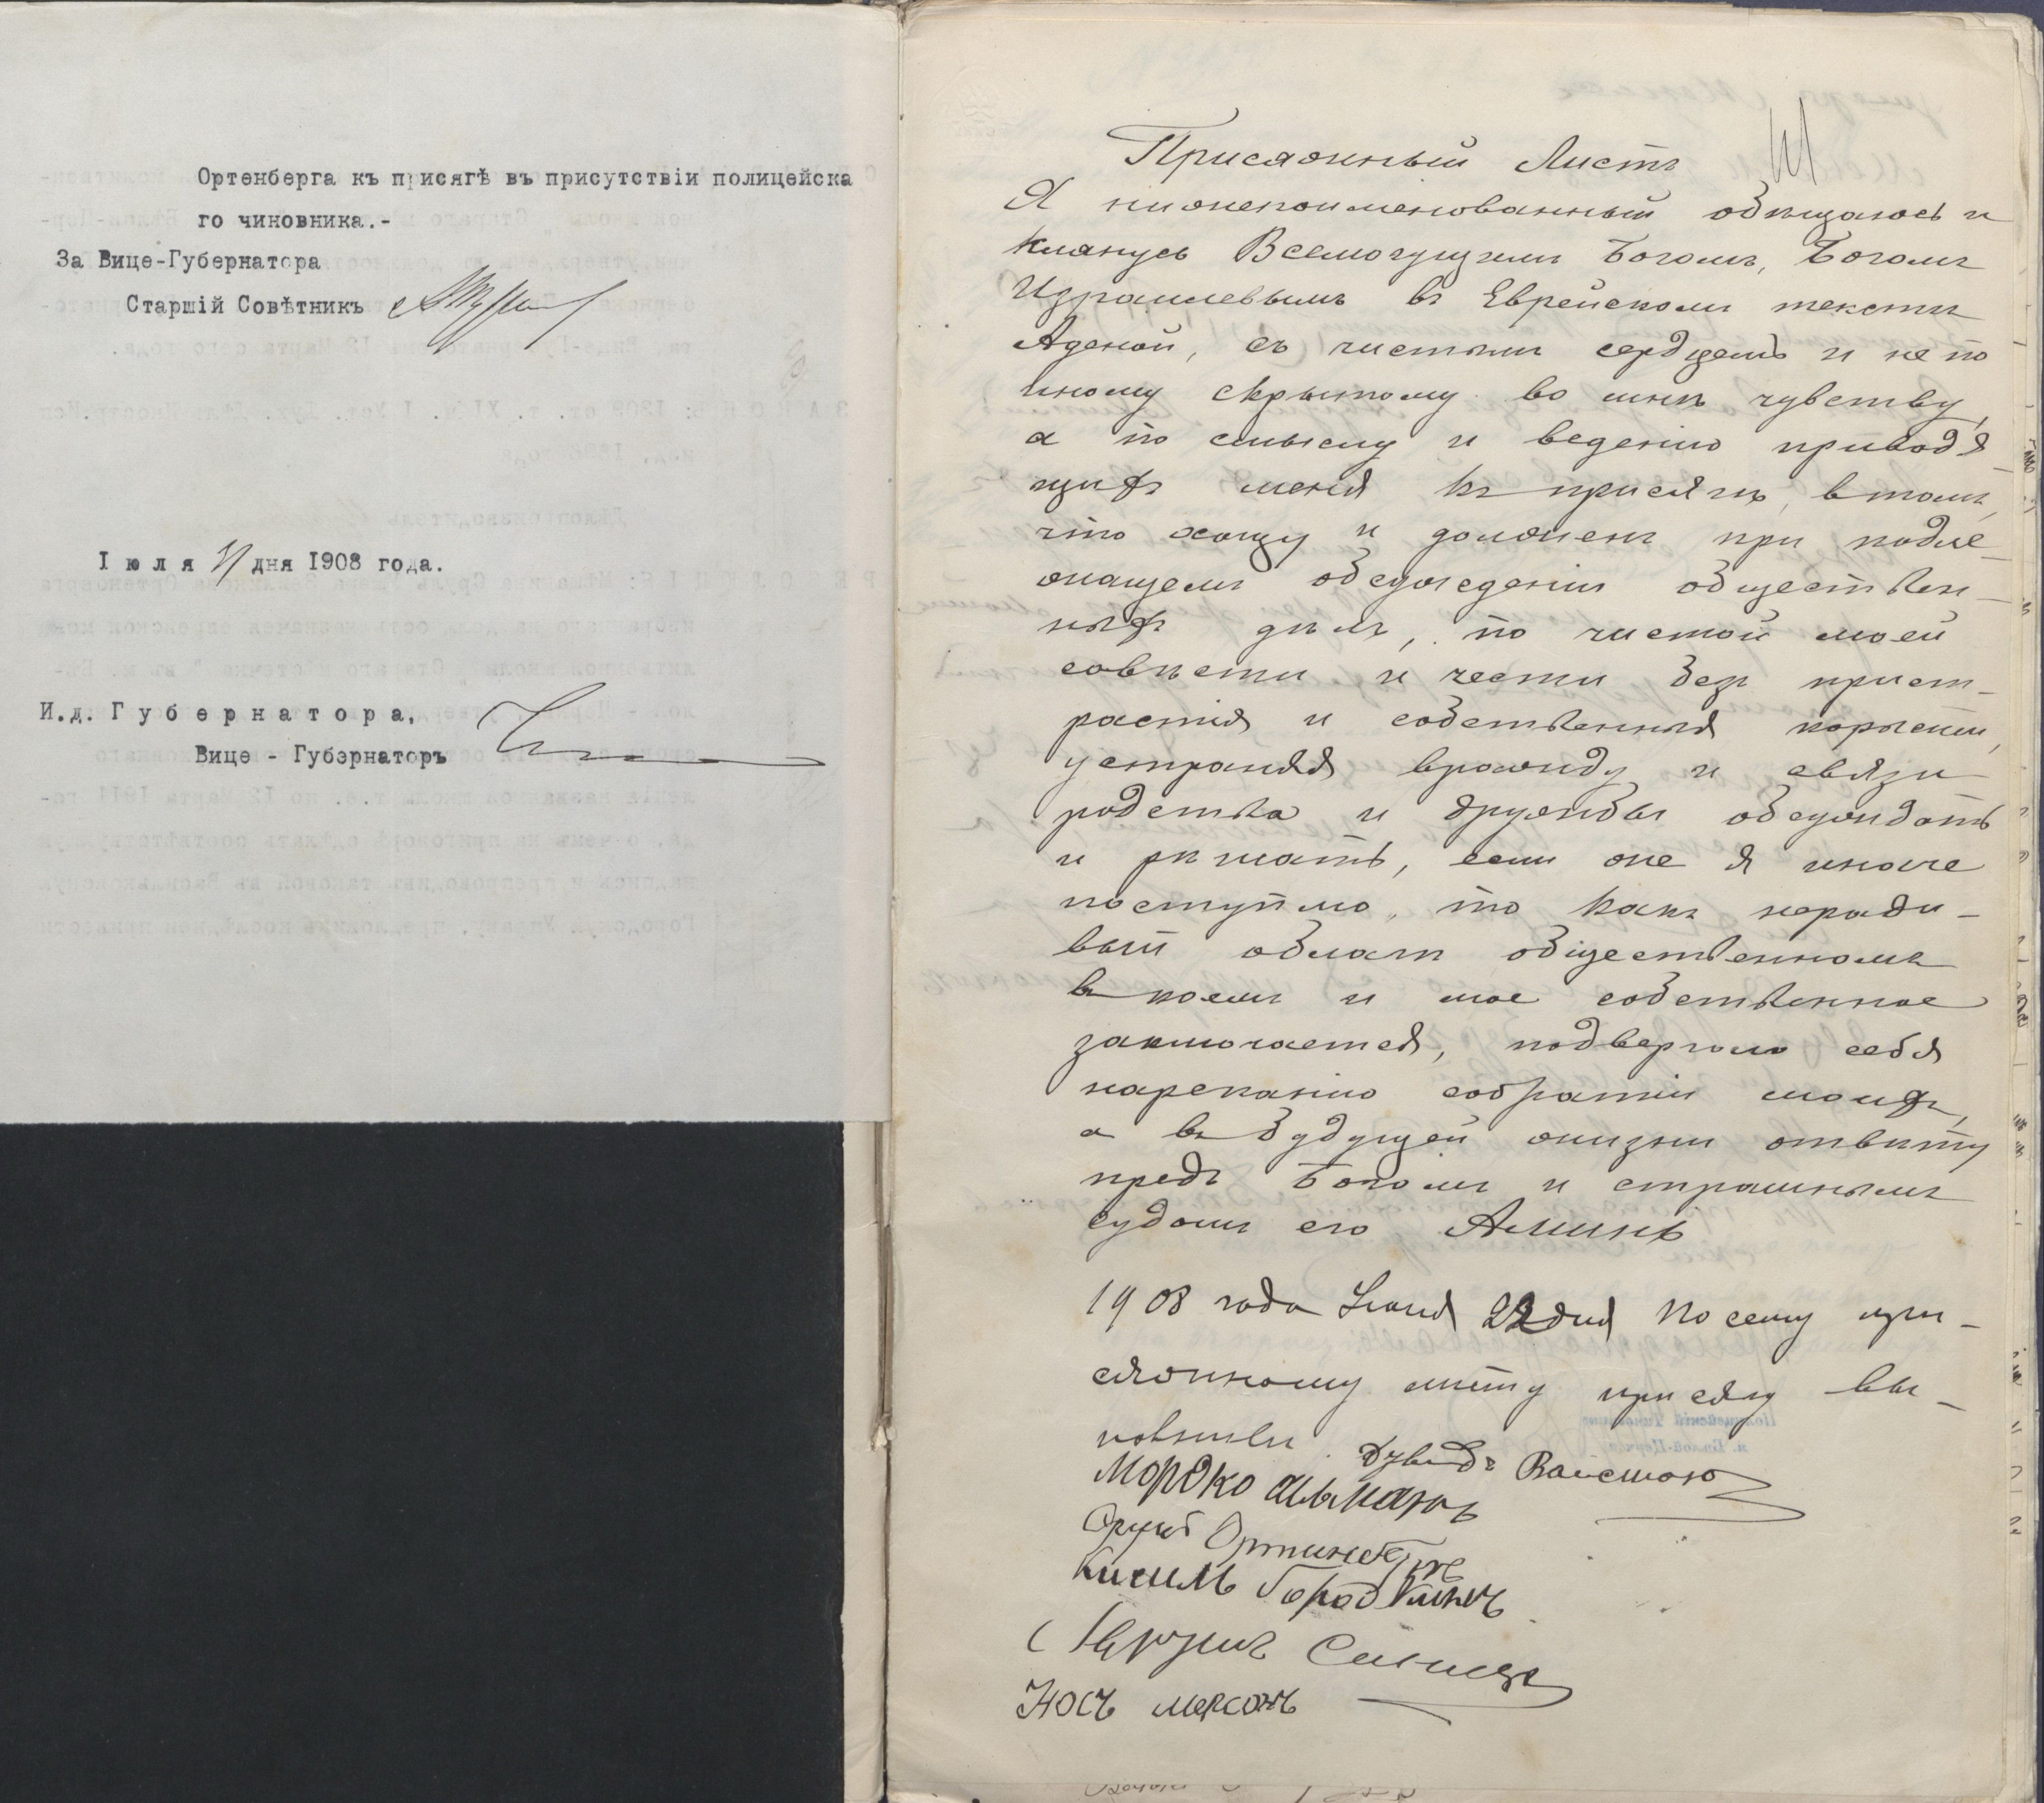 Ортенберга къ присягѣ въ присутствіи полицейска
го чиновника.-
За Вице-Губернатора
Старшій Совѣтникъ
Iюля 11 дня 1908 года.
И.д. Губернатора,
Вице - Губернаторъ
Присяжный Листъ
Я нижепоименованный обѣщаюсь и
клянусь Всемогущимъ Богомъ, Богомъ
Израилевымъ въ Еврейскомъ текстѣ
Аденой, съ чистымъ сердцемъ и не по
иному скрытому во мнѣ чувству,
а по смыслу и веденію приводя
щихъ меня къ присягѣ, втомъ,
что хощу и долженъ при подле
жащемъ обсужденіи обществен
ныхъ дѣлъ, по чистой моей
совѣсти и чести безъ прист
растія и собственныя корысти,
устраняя вражду и связи
родства и дружбы обсуждать
и рѣшать, если же я иначе
поступлю, то какъ неради
вый облагѣ общественномъ
въ коемъ и мое собственное
заключается, подвергаю себя
нареканію собратіи моихъ,
а въ будущей жизни отвѣту
предъ Богомъ и страшнымъ
судомъ его Аминь
1908 года Iюня 22 дня По сему при
сяжному листу присягу вы
полнили
Мордко
Сруль Ортинберг
Кисиль Городский
Мерсонъ